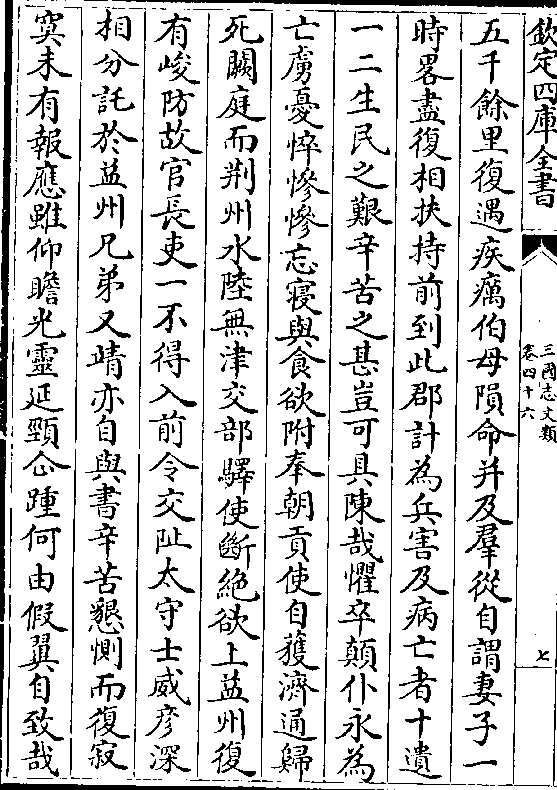 欽定四庫全書
三國志文類
卷四十六
七
五千餘里復遇疾癘伯母隕命并及羣從自謂妻子一
時畧盡復相扶持前到此郡計為兵害及病亡者十遺
一二生民之艱辛苦之甚豈可具陳哉懼卒顛仆永為
亡虜憂悴慘慘忘寢與食欲附奉朝貢使自獲濟通歸
死闕庭而荆州水陸無津交部驛使斷絶欲上益州復
有峻防故官長吏一不得入前令交阯太守士威彦深
相分託於益州兄弟又靖亦自與書辛苦懇惻而復寂
寞未有報應雖仰瞻光靈延頸企踵何由假翼自致哉